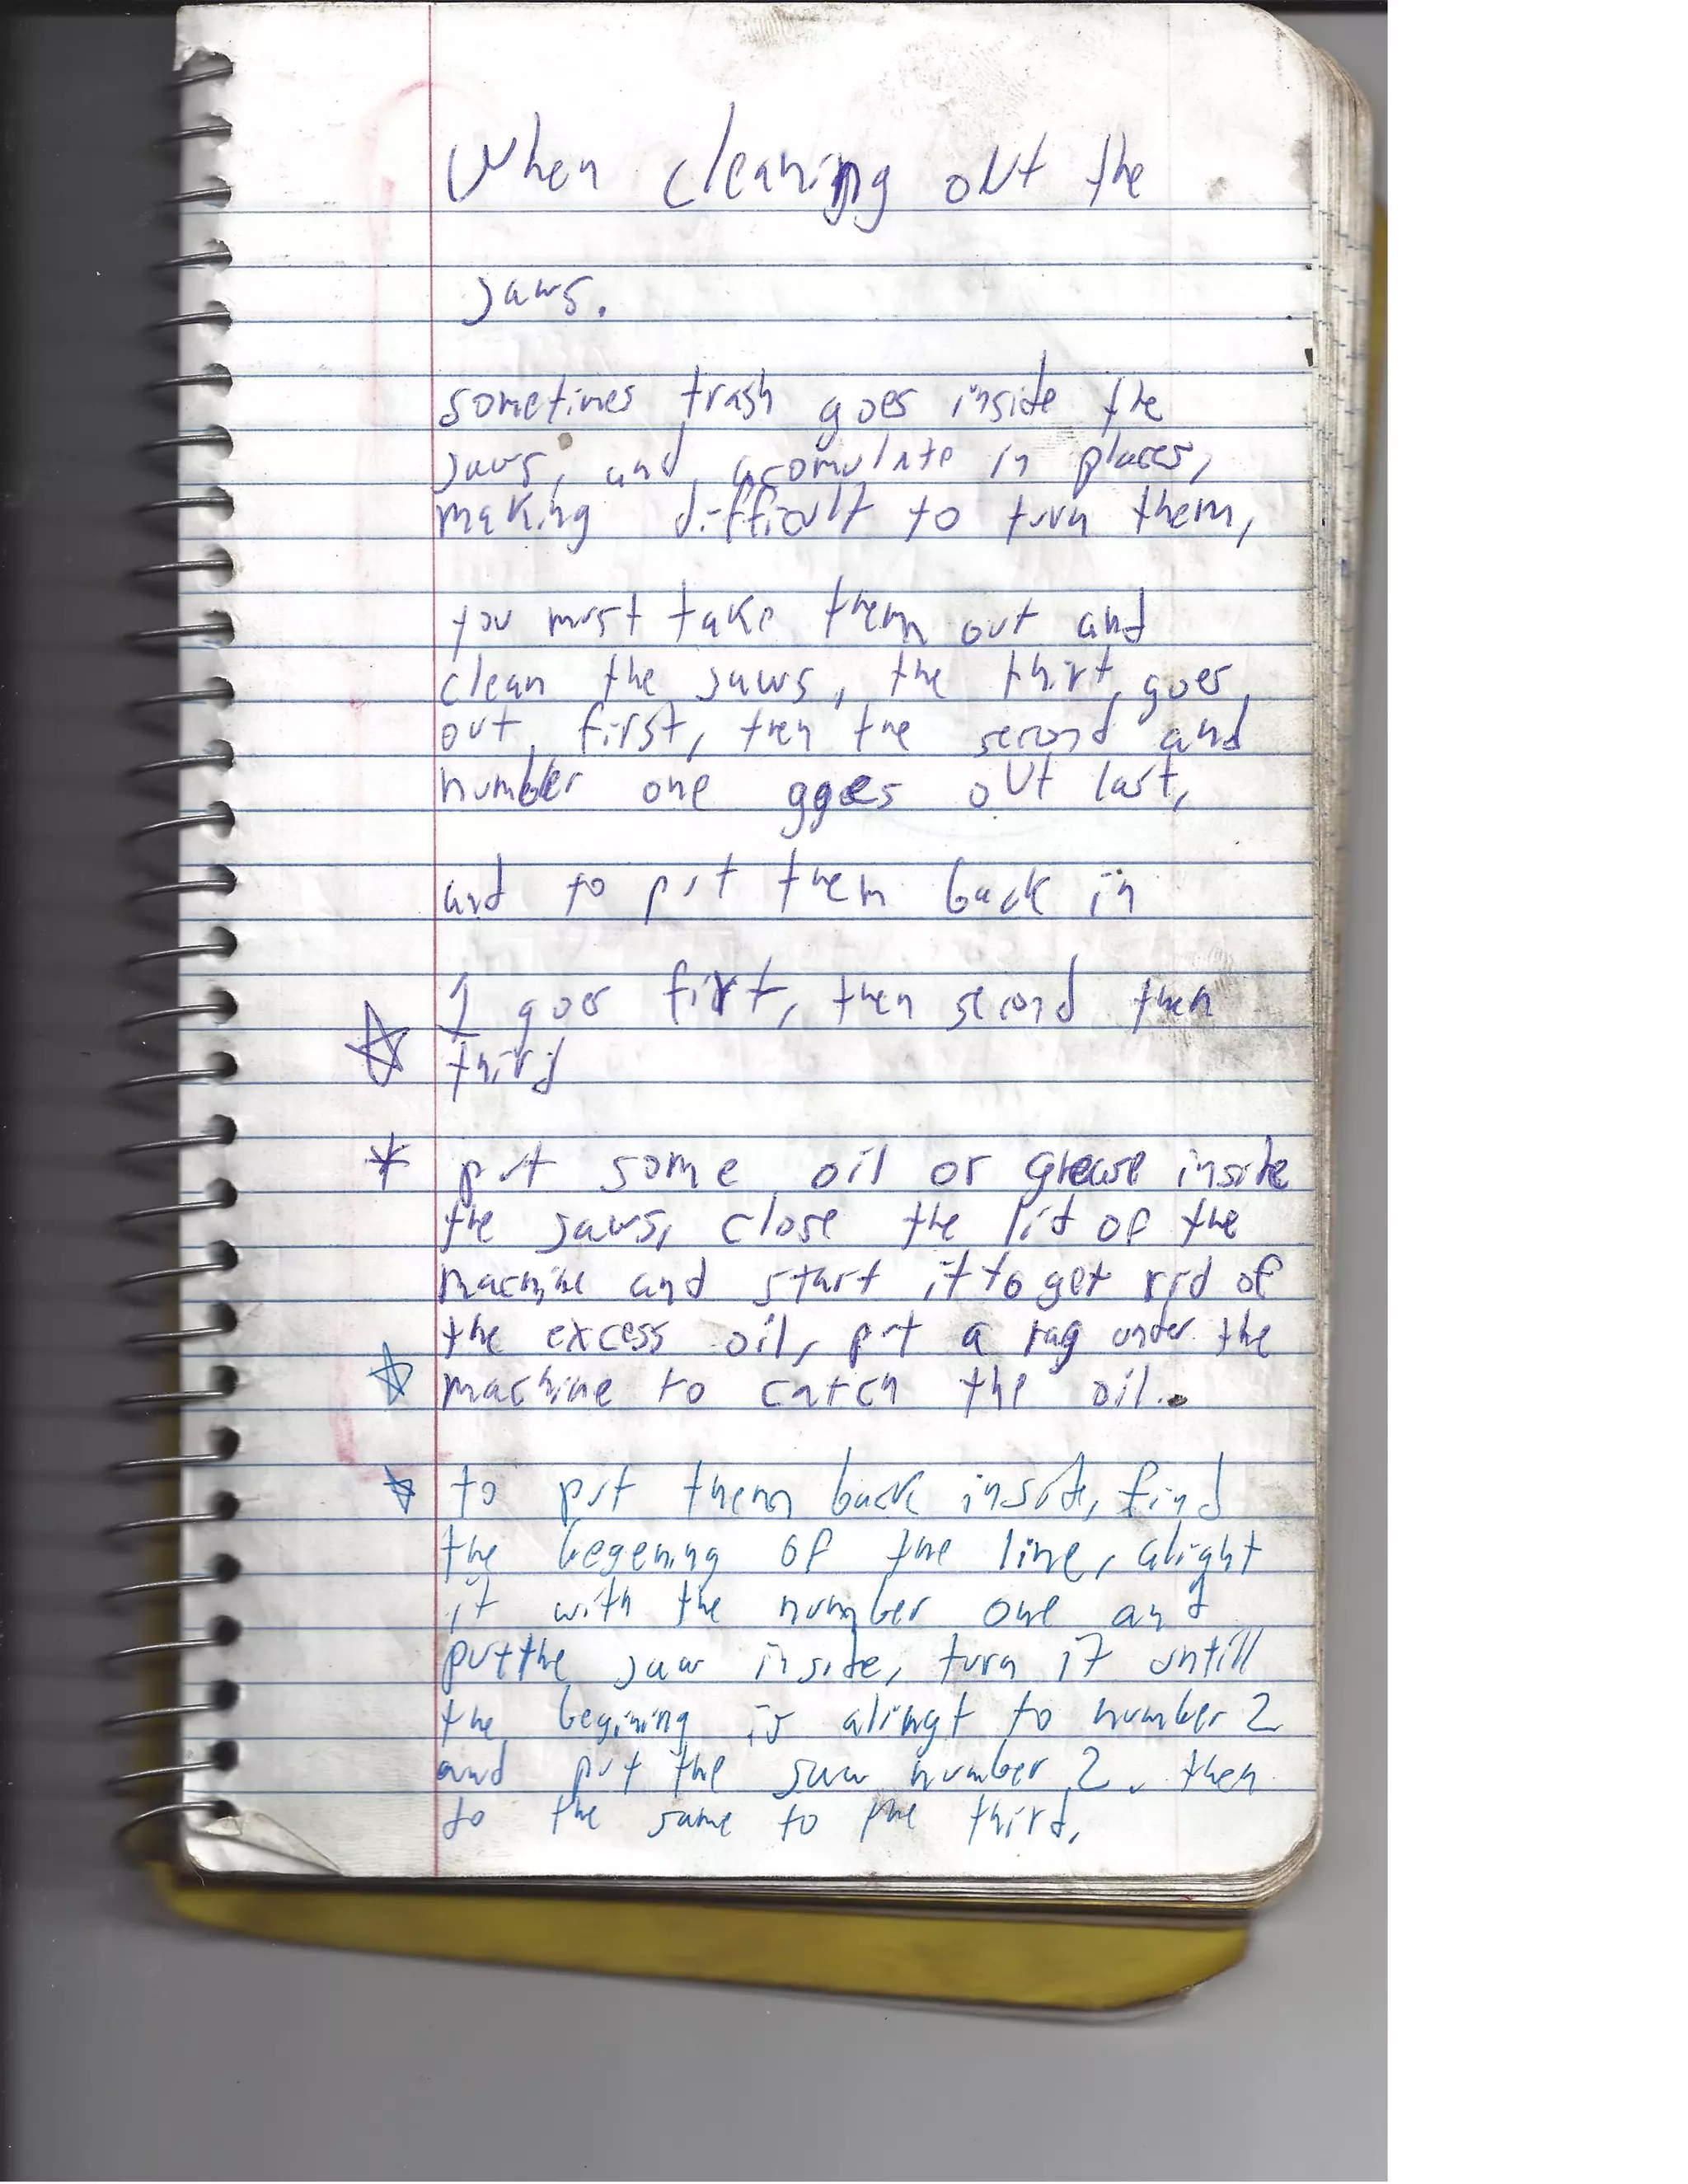 When cleaning out the
jaws.
sometimes trash goes inside the
jaws, and acomulate in places,
making difficult to turn them,
you must take them out and
clean the jaws, the thirt goes
out first, then the second and
number one ggoes out last,
and to put them back in
1 goes firt, then second then
third
* put some oil or grease inside
the jaws, close the lid of the
machine and start it to get rid of
the excess oil, put a rag under the
machine to catch the oil.
to put them back inside, find
the begening of the line, alight
it with the number one and
put the jaw inside, turn it untill
the begining is alingt to number 2
and put the jaw number 2. then
do the same to the third.